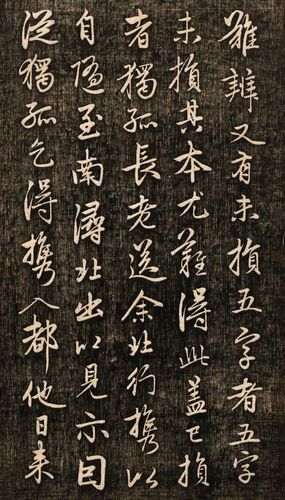 難辨又有未損五字者五字
未損其本尤難得此盖已損
者獨孤長老送余北行携以
自随至南潯北出以見示因
從獨孤乞得携入都他日来